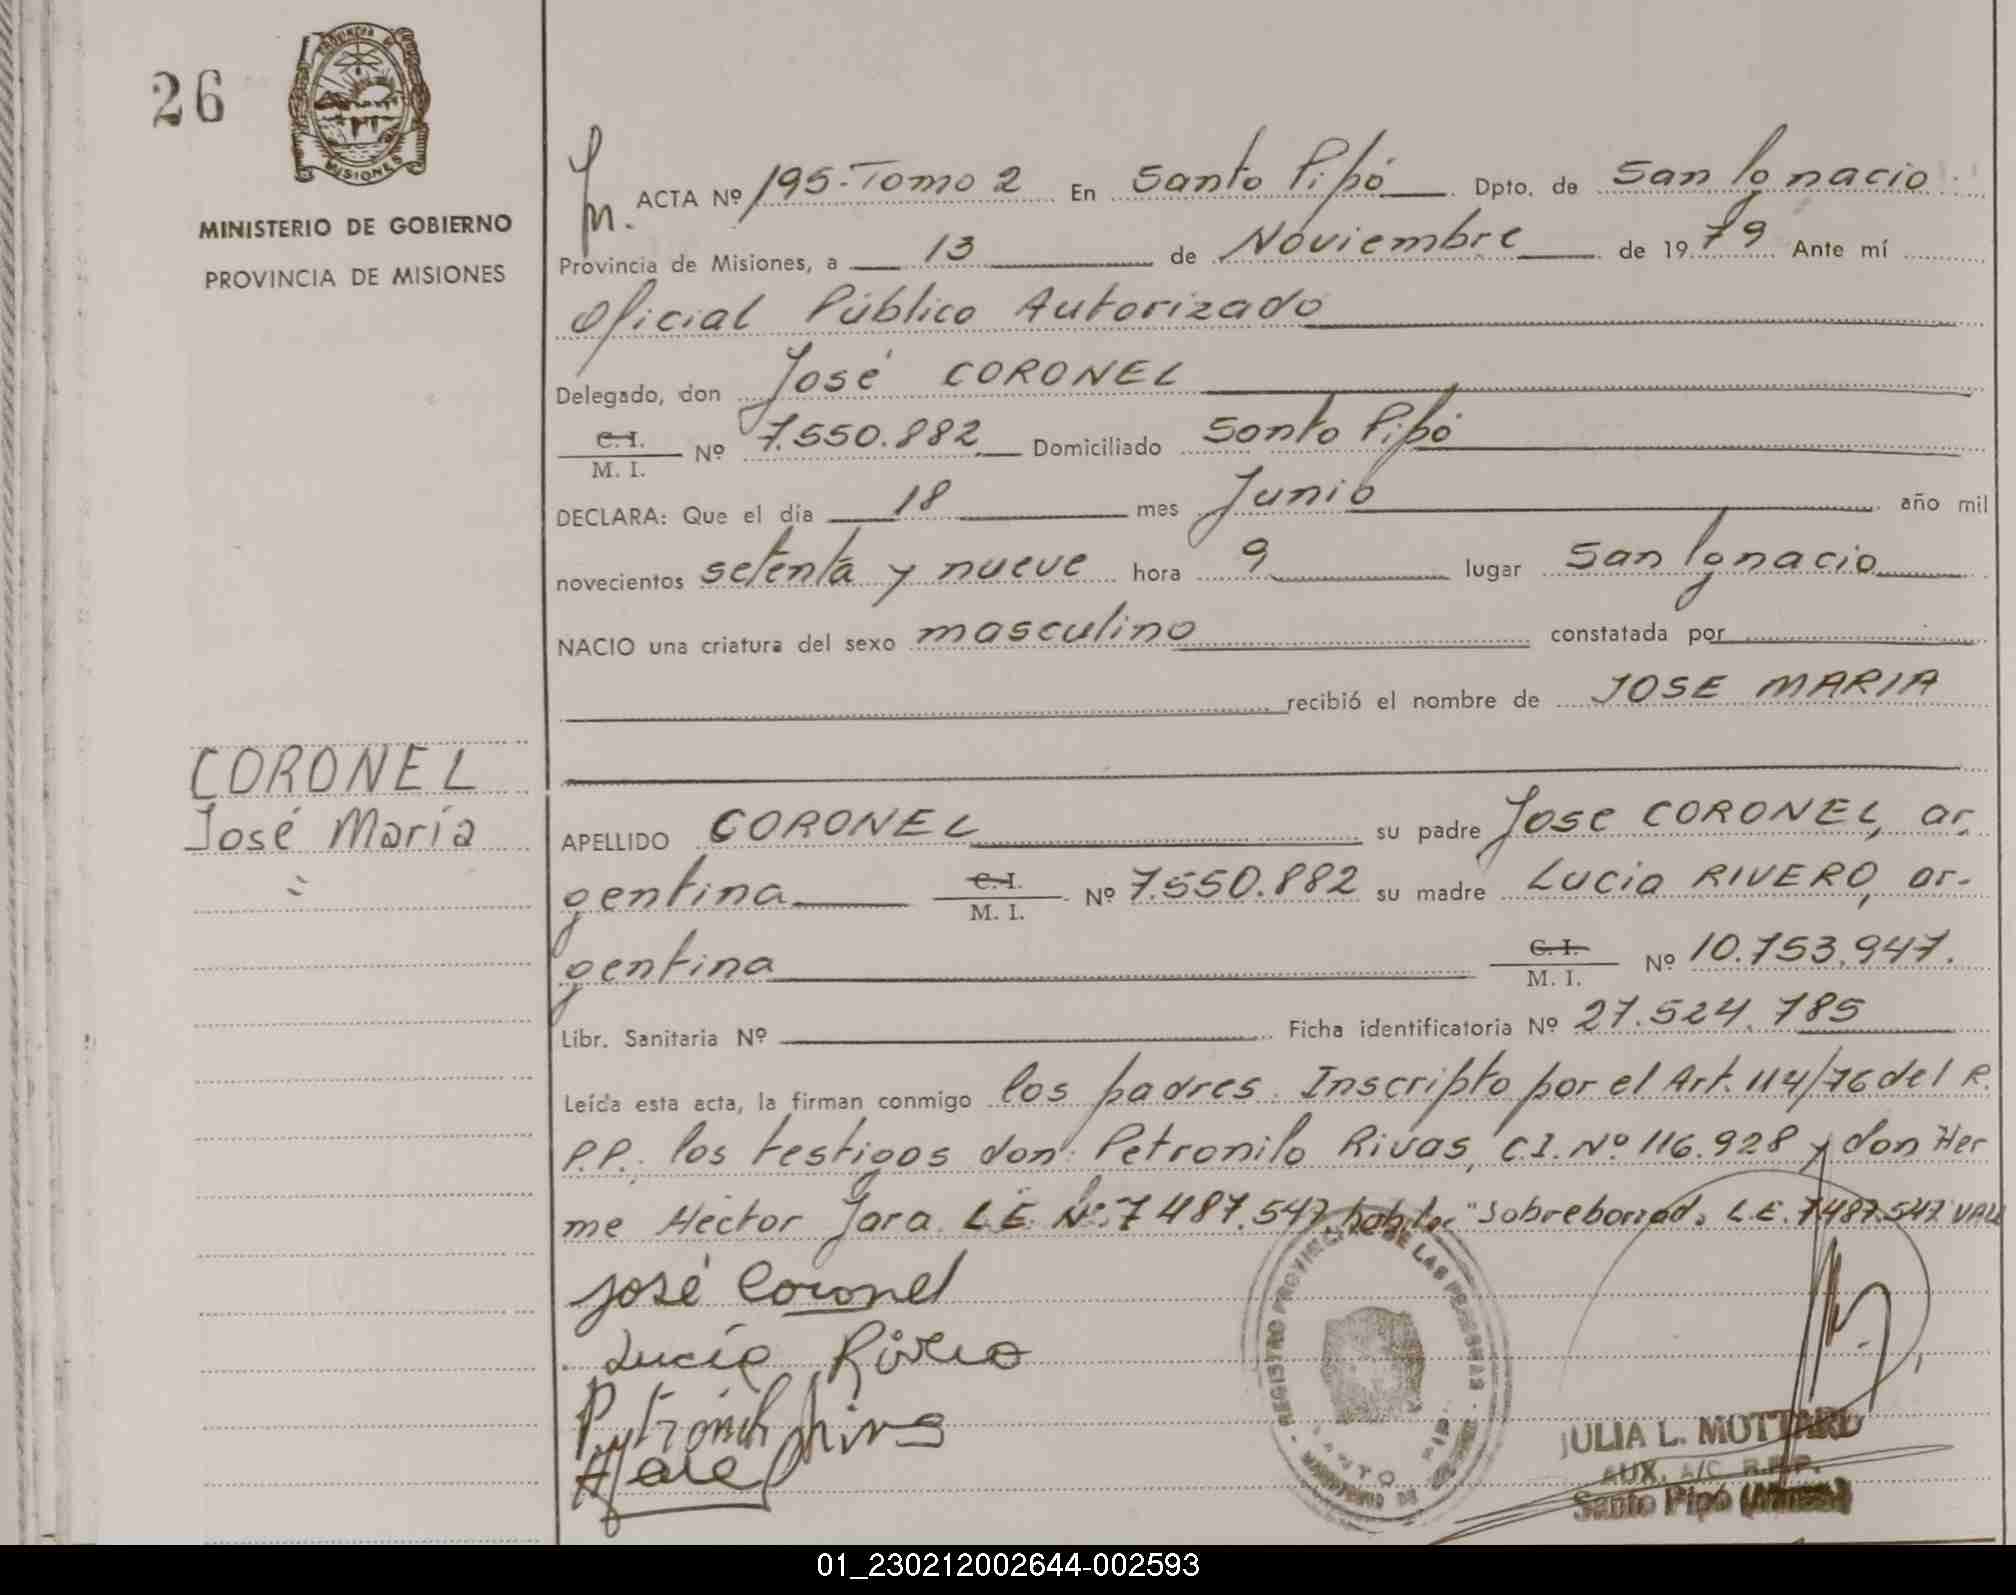 26
PROVINCIA DE
MISIONES
MINISTERIO DE GOBIERNO
PROVINCIA DE MISIONES
ACTA Nº 195-Tomo 2 En Santo Pipó Dpto. de San Ignacio
Provincia de Misiones, a 13 de Noviembre de 1979 Ante mí
Oficial Público Autorizado
Delegado, don José CORONEL
C.I.
M. I. Nº 7.550.882 Domiciliado Santo Pipó
DECLARA: Que el día 18 mes Junio año mil
novecientos setenta y nueve hora 9 lugar San Ignacio
NACIO una criatura del sexo masculino constatada por
recibió el nombre de JOSE MARIA
CORONEL
José María
APELLIDO CORONEL su padre Jose CORONEL, ar-
gentina C.I. M. I. Nº 7.550.882 su madre Lucia RIVERO, ar-
gentina C.I. M. I. Nº 10.753.947.
Libr. Sanitaria Nº Ficha identificatoria Nº 27.524.785
Leída esta acta, la firman conmigo los padres. Inscripto por el Art. 114/76 del R.
P.P. los testigos don Petronilo Rivas, C.I. Nº 116.928 y don Her
me Hector Jara L.E. Nº 7.487.547 "Sobreborrad. L.E. 7.487.547 VALE
José Coronel
Lucía Rivero
REGISTRO PROVINCIAL DE LAS PERSONAS
SANTO
JULIA L. MOTTARD
AUX. A/C R.P.P.
Santo Pipó
01_230212002644-002593